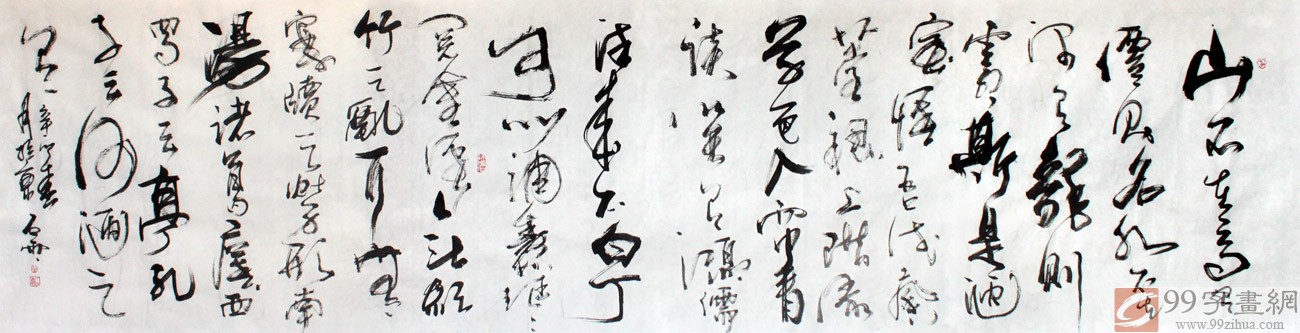 山不在高有
僊則名水不在
深有龍則
靈斯是陋
室惟吾德馨
苔痕上階綠
草色入簾青
談笑有鴻儒
往來无白丁
可以調素琴
閱金經無絲
竹之亂耳無
案牘之勞形南
陽諸葛廬西
蜀子云亭孔
子云何陋之
有 辛卯春
月於京
99字畫網
www.99zihua.com